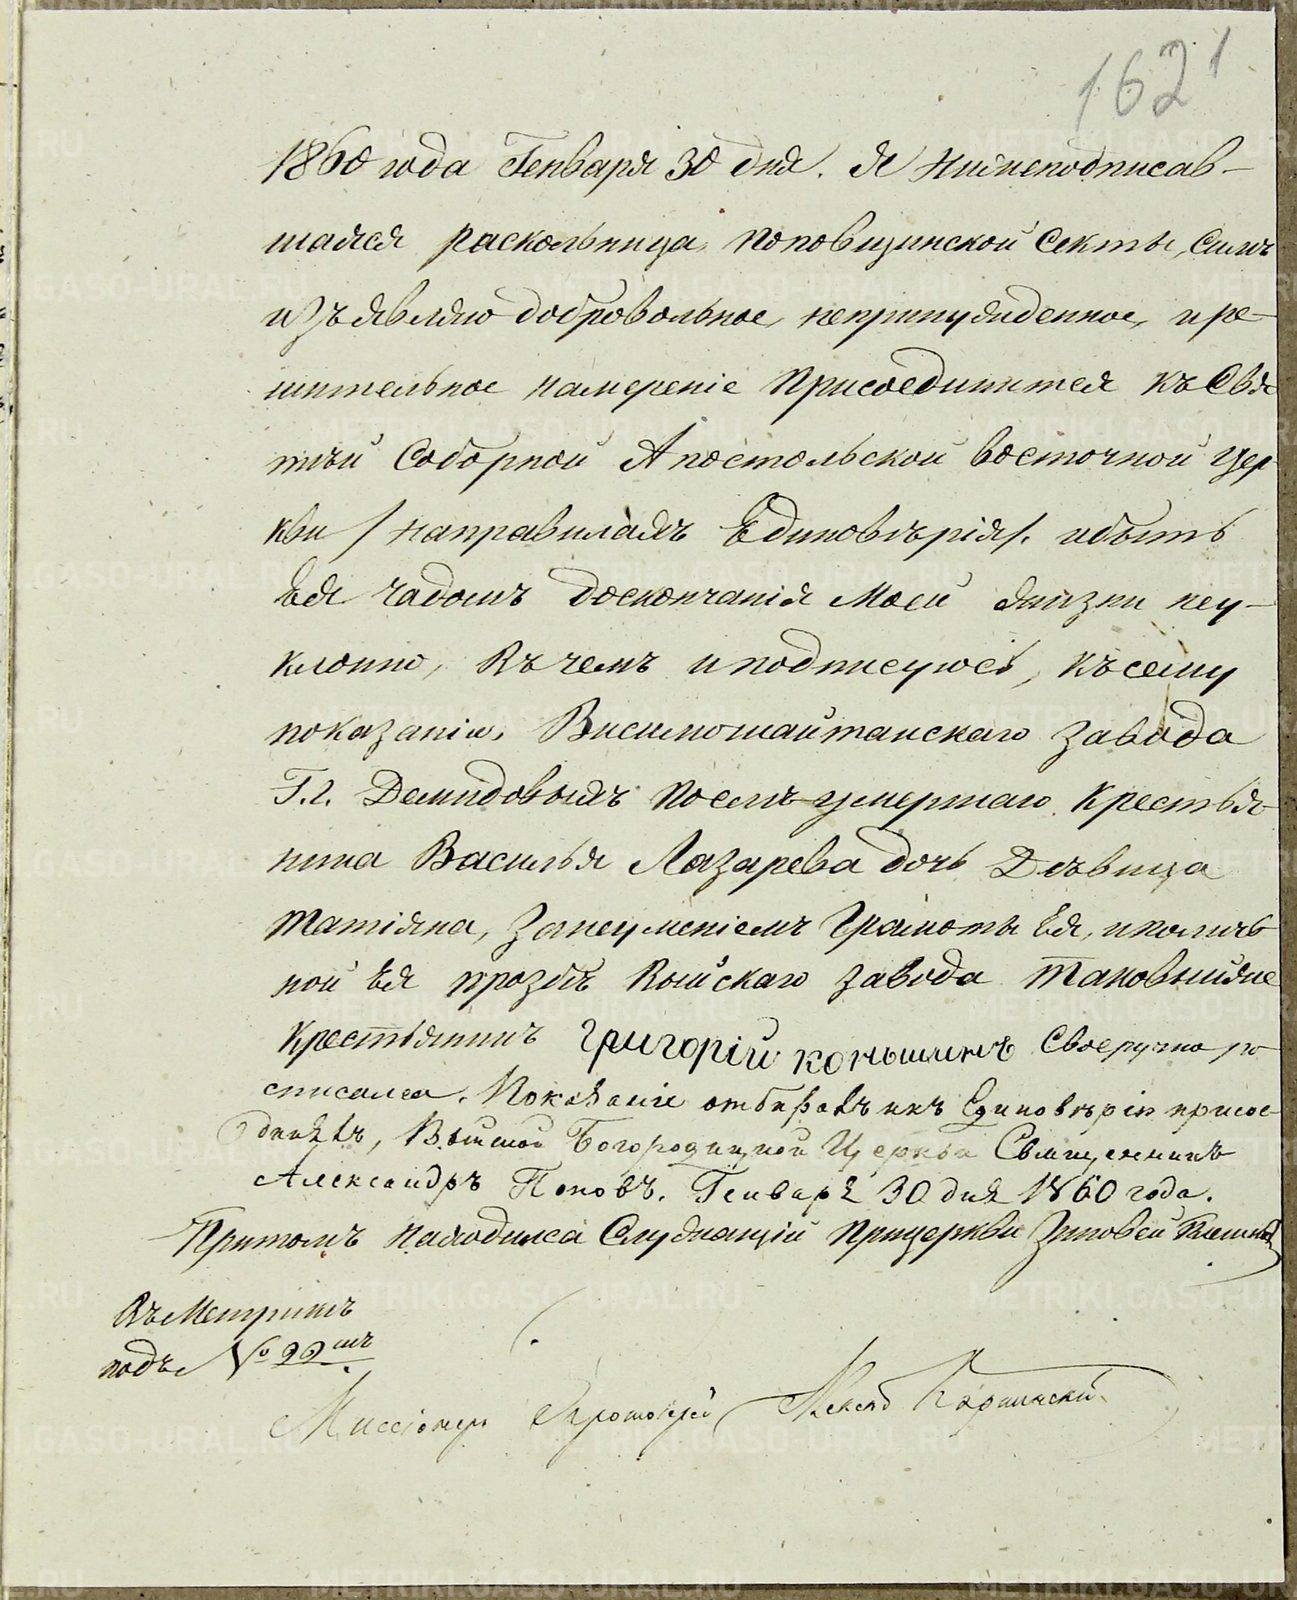 1621
1860 года Генваря 30 дня. Я нижеподписав-
шаяся раскольница поповщинской Секты, Симъ
изъявляю добровольное, непринужденное, и ре-
шительное намерение Присоединится къ Свя
тей Соборной Апостольской восточной Цер
кви /направилахъ Единоверія/. и быть
Ея Чадомъ доскончанія Моей жизни неу-
клонно, Въ чемъ и подписуюсь, къ сему
показанію, Висимошайтанскаго завода
Г.г. Демидовыхъ послѣ умершаго Крестья
нина Василья Лазарева дочь Дѣвица
Татіяна, Занеумениемъ Грамоты Ея, и полич
ной Ея прозбѣ Выйскаго завода Таковыйже
Крестьянинъ Григорій конышинъ Своеручно ро
списался. Показаніе отбиралъ икъ Единоверію присое
динялъ, Выйской Богородицкой Церкви Священникъ
Александръ Поповъ. Генваря 30 дня 1860 года.
Притомъ находился Служащій Прицеркви Зиновей
Въ Метрикѣ
подъ № 22мъ
Миссіонеръ Протоіерей